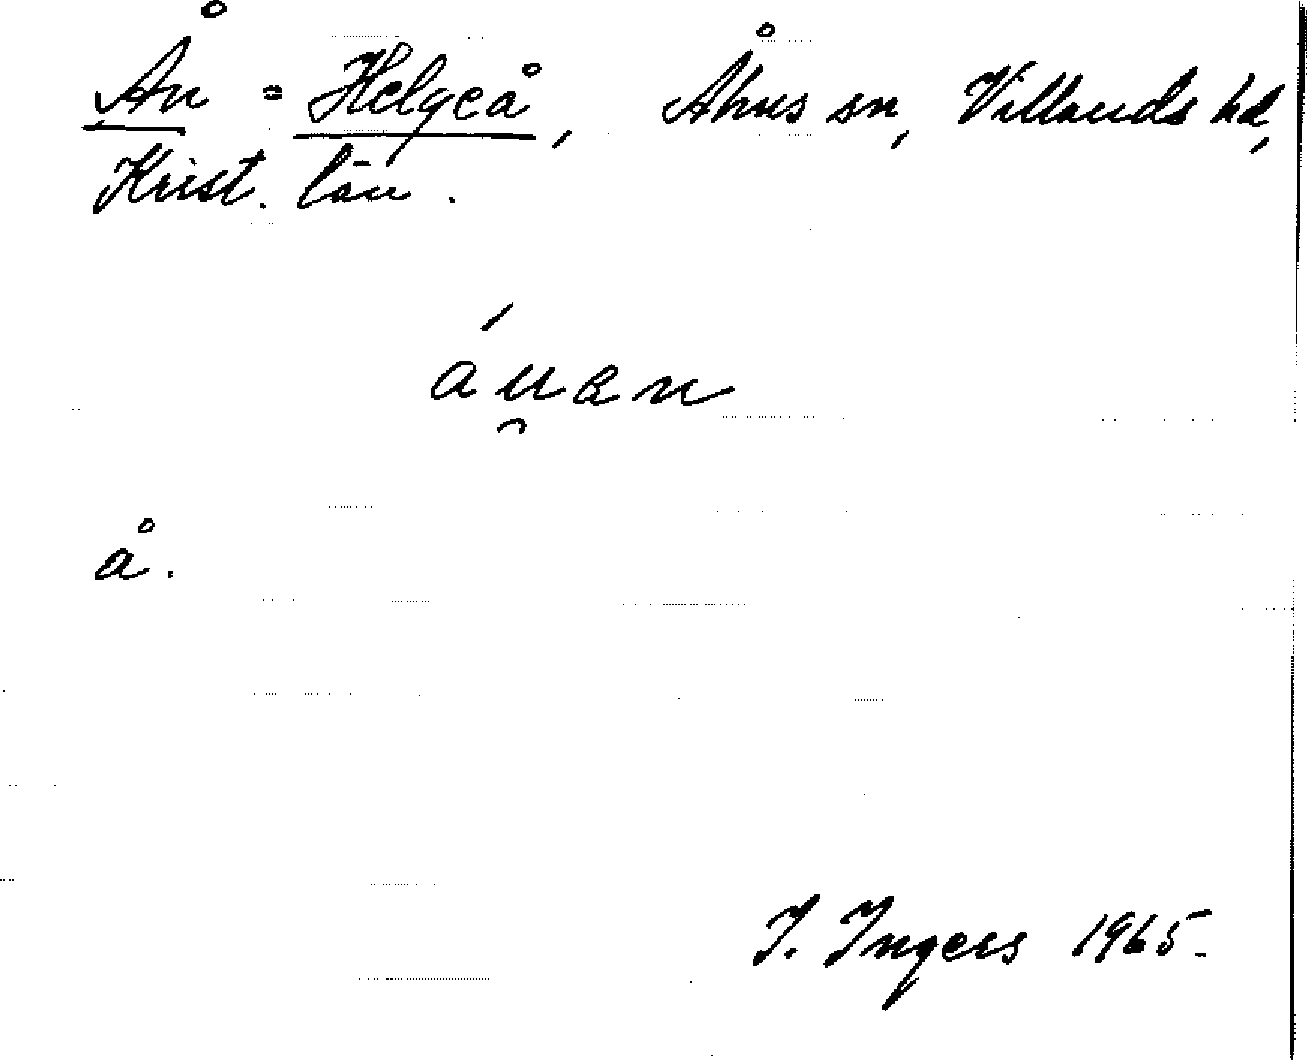 Ån = Helgeå, Åhus sn, Villands hd,
Krist. län.
áu̯an
å.
I. Ingers 1965.